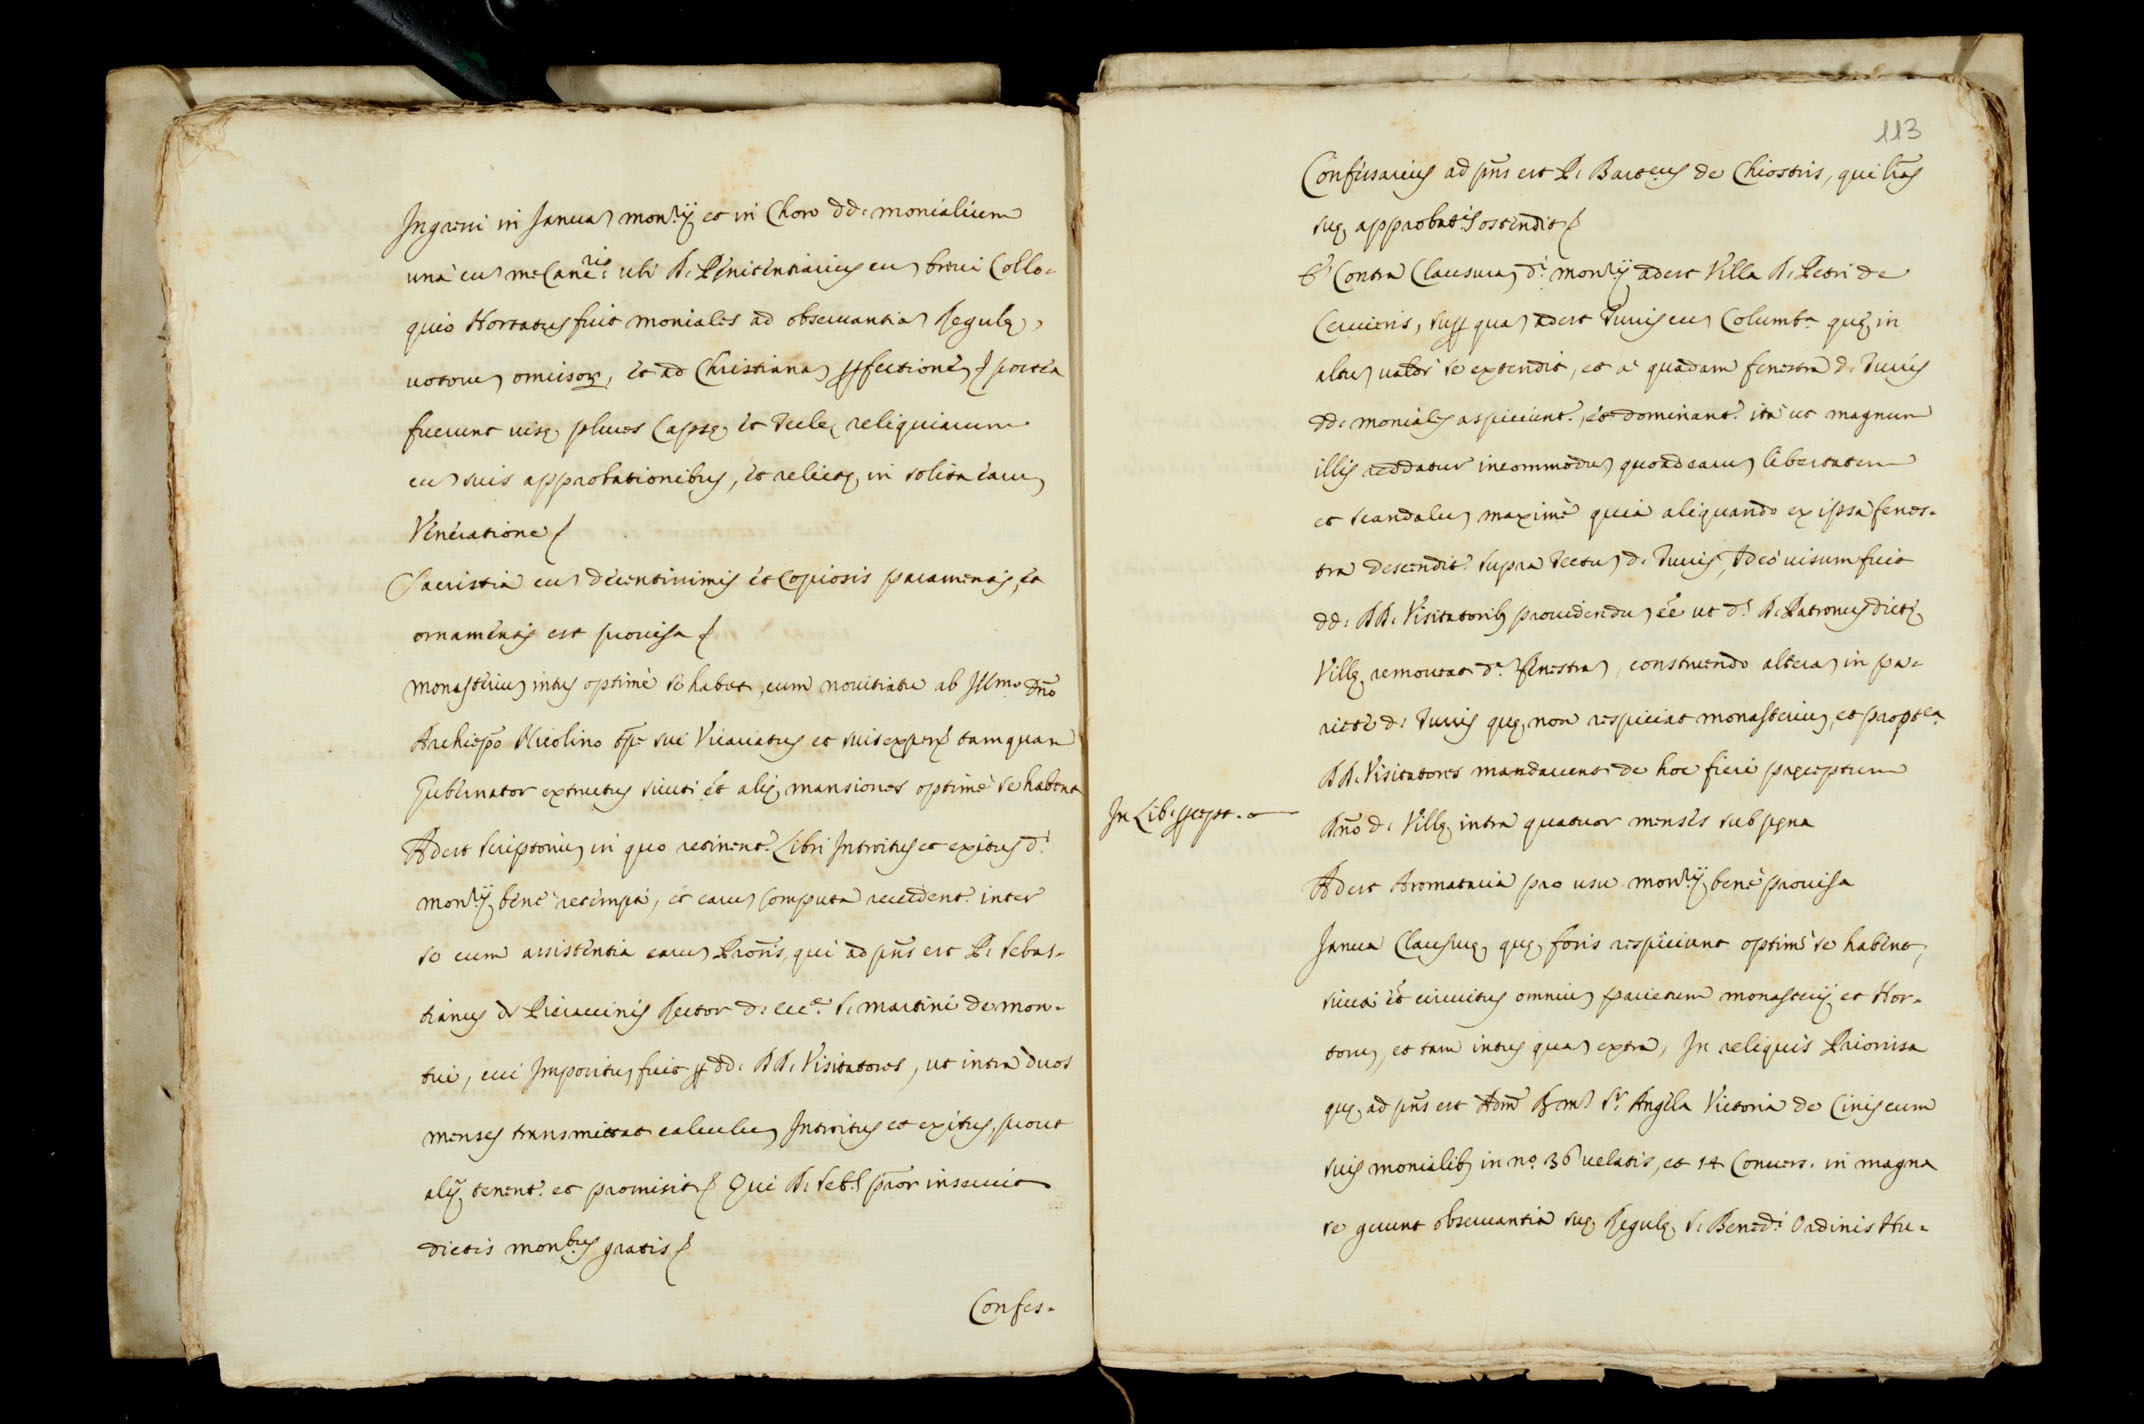 Ingressi in Januaȝ mon.rij et in Choro dd: monialium
unà cuȝ me Canc.rio ubi D: Pęnitentiarius cuȝ brevi Collo-
quio Hortatus fuit moniales ad observantiaȝ Regulę,
votoruȝ omissorȝ, et ad Christianaȝ perfectionèȝ / postea
fuerunt visę plures Capsę, et Teclę reliquiarum
cuȝ suis approbationibus, et relictę in solita earuȝ
Veneratione /
Sacristia cuȝ decentissimis et Copiosis paramentis, et
ornamentis est provisa /
Monasteriuȝ intus optimè se habet, cum novitiatu ab Ill.mo Dno
Archiepo Nicolino tpe sui Vicariatus et suis expens tamquam
Gubernator extructus sicuti et alię mansiones optimè se habent
Adest scriptoriuȝ in quo retinent.r Libri Introitus et exitus d.i
mon.rij, benè retempta, et earuȝ computa recedent.r inter
se cum assistentia earuȝ Pronis, qui ad pns est P: Sebas-
tianus de Pieraccinis Rector d: ecc.e S: Martini de Mon-
tui, cui Impositus fuit per dd: DD: Visitatores, ut intra duos
menses transmittat calculuȝ Introitus et exitus, prout
alię tenent.r et promisit / Qui D: Seb.s pror inservit
dictis mon.bus gratis /
Confes-
113
Confessarius ad pns est P: Barteus de Chiostris, qui lras
suę approbat.is ostendit /
Contra Clausuraȝ d.i mon.rij adest Villa D: Petri de
Cervieris, super quaȝ adest Turris cuȝ Columb.a quę in
altuȝ valdè se extendit, et à quadam fenestra d: Turris
dd: moniales aspiciunt.r, et dominant.r ità ut magnum
illis reddatur incommoduȝ quoad earuȝ libertatem
et scandaluȝ maximè quia aliquando ex ipsa fenes-
tra descendit.r supra Tectuȝ d: Turris, Adeò visum fuit
dd: DD: Visitatoribȝ providenduȝ eè ut d.s D: Patronus dictę
Villę removeat d.a fenestraȝ, construendo alteraȝ in pa-
riete d: Turris quę non respiciat monasteriuȝ, et propt.ea
DD: Visitatores mandaverunt de hoc fieri pręceptum
In Lib: pręcept. 
Dno d: Villę intra quatuor menses sub pęna
Adest Aromataria pro usu mon.rij benè provisa
Janua Clausurę, quę foris respiciunt optimè se habent,
sicuti et circuitus omniuȝ parietum monasterij et Hor-
toruȝ, et tam intus quaȝ extra, In reliquis Priorissa
quę ad pns est Adm.m R.m Sr Angela Victoria de Cinis cum
suis monialibȝ in n.o 36 velatis, et 14 Convers: in magna
se gerunt observantia suę Regulę S: Bened.i Ordinis Hu-